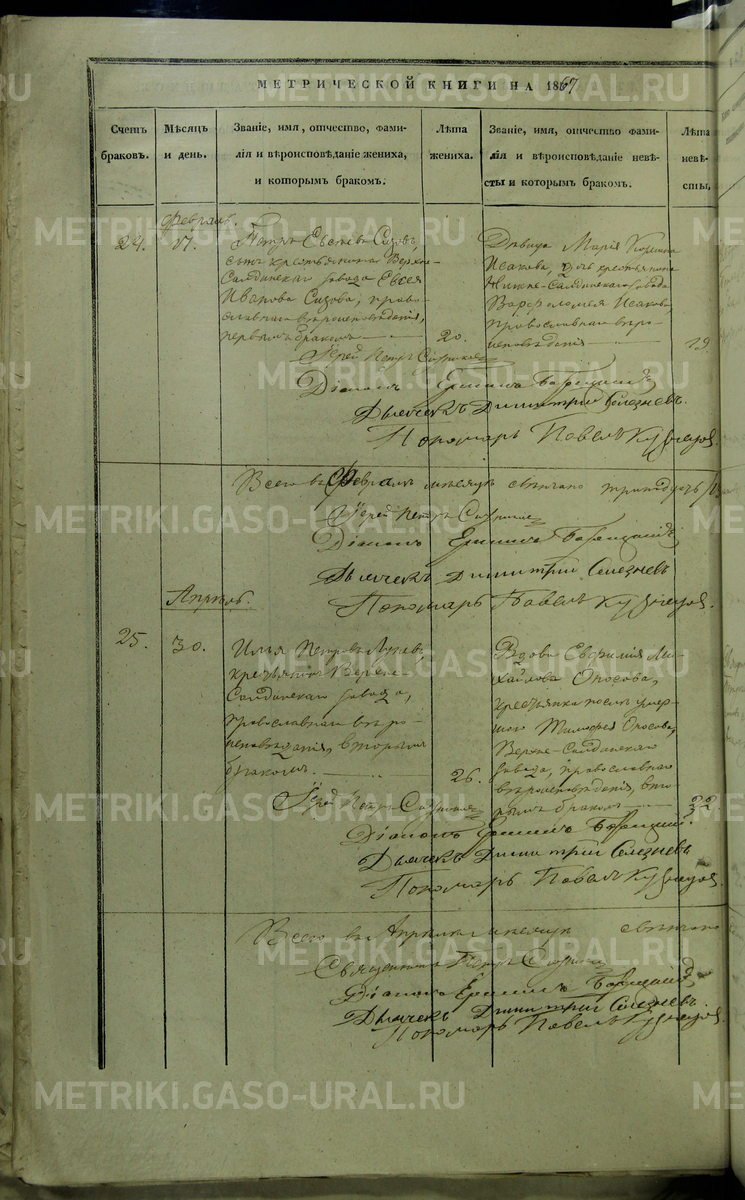 МЕТРИЧЕСКОЙ КНИГИ НА 1867
Счетъ браковъ.
Мѣсяцъ и день.
Званіе, имя, отчество, фами-
лія и вѣроисповѣданіе жениха,
и которымъ бракомъ.
Лѣта жениха.
Званіе, имя, отчество фами-
лія и вѣроисповѣданіе невѣ-
сты и которымъ бракомъ.
Лѣта невѣ-
сты,
Февраль.
24.
Петръ Евсеевъ Сизовъ,
сынъ крестьянина Верхне-
Салдинскаго завода Евсея
Иванова Сизова, право-
славнаго вѣроисповѣданія,
первымъ бракомъ
20.
Дѣвица Марія
Исакова, дочь крестьянина
Нижне-Салдинскаго завода
Варфоломея Исакова
православнаго вѣро-
исповѣданія
19.
Іерей Петръ
Діаконъ
Дьячекъ Димитрій Селезневъ.
Пономарь Павелъ Кузнецов.
Всего въ Февралѣ мѣсяцѣ свѣнчано тринадцать
Іерей Петръ
Діаконъ
Дьячекъ Димитрій Селезневъ
Пономарь Павелъ Кузнецов.
Апрѣль.
25.
30.
Илья Петровъ
крестьянинъ Верхне-
Салдинскаго завода,
православнаго вѣро-
исповѣданія, вторымъ
бракомъ.
26.
Вдова Евфимія Ми-
хайлова
крестьянка послѣ умер-
шаго Тимофея
Верхне-Салдинскаго
завода, православнаго
вѣроисповѣданія, вто-
рымъ бракомъ
32
Іерей Петръ
Діаконъ
Дьячекъ Димитрій Селезневъ
Пономарь Павелъ Кузнецов.
Всего въ Апрѣлѣ мѣсяцѣ свѣнчано
Священникъ Петръ
Діаконъ
Дьячекъ Димитрій Селезневъ.
Пономарь Павелъ Кузнецов
METRIKI.GASO-URAL.RU